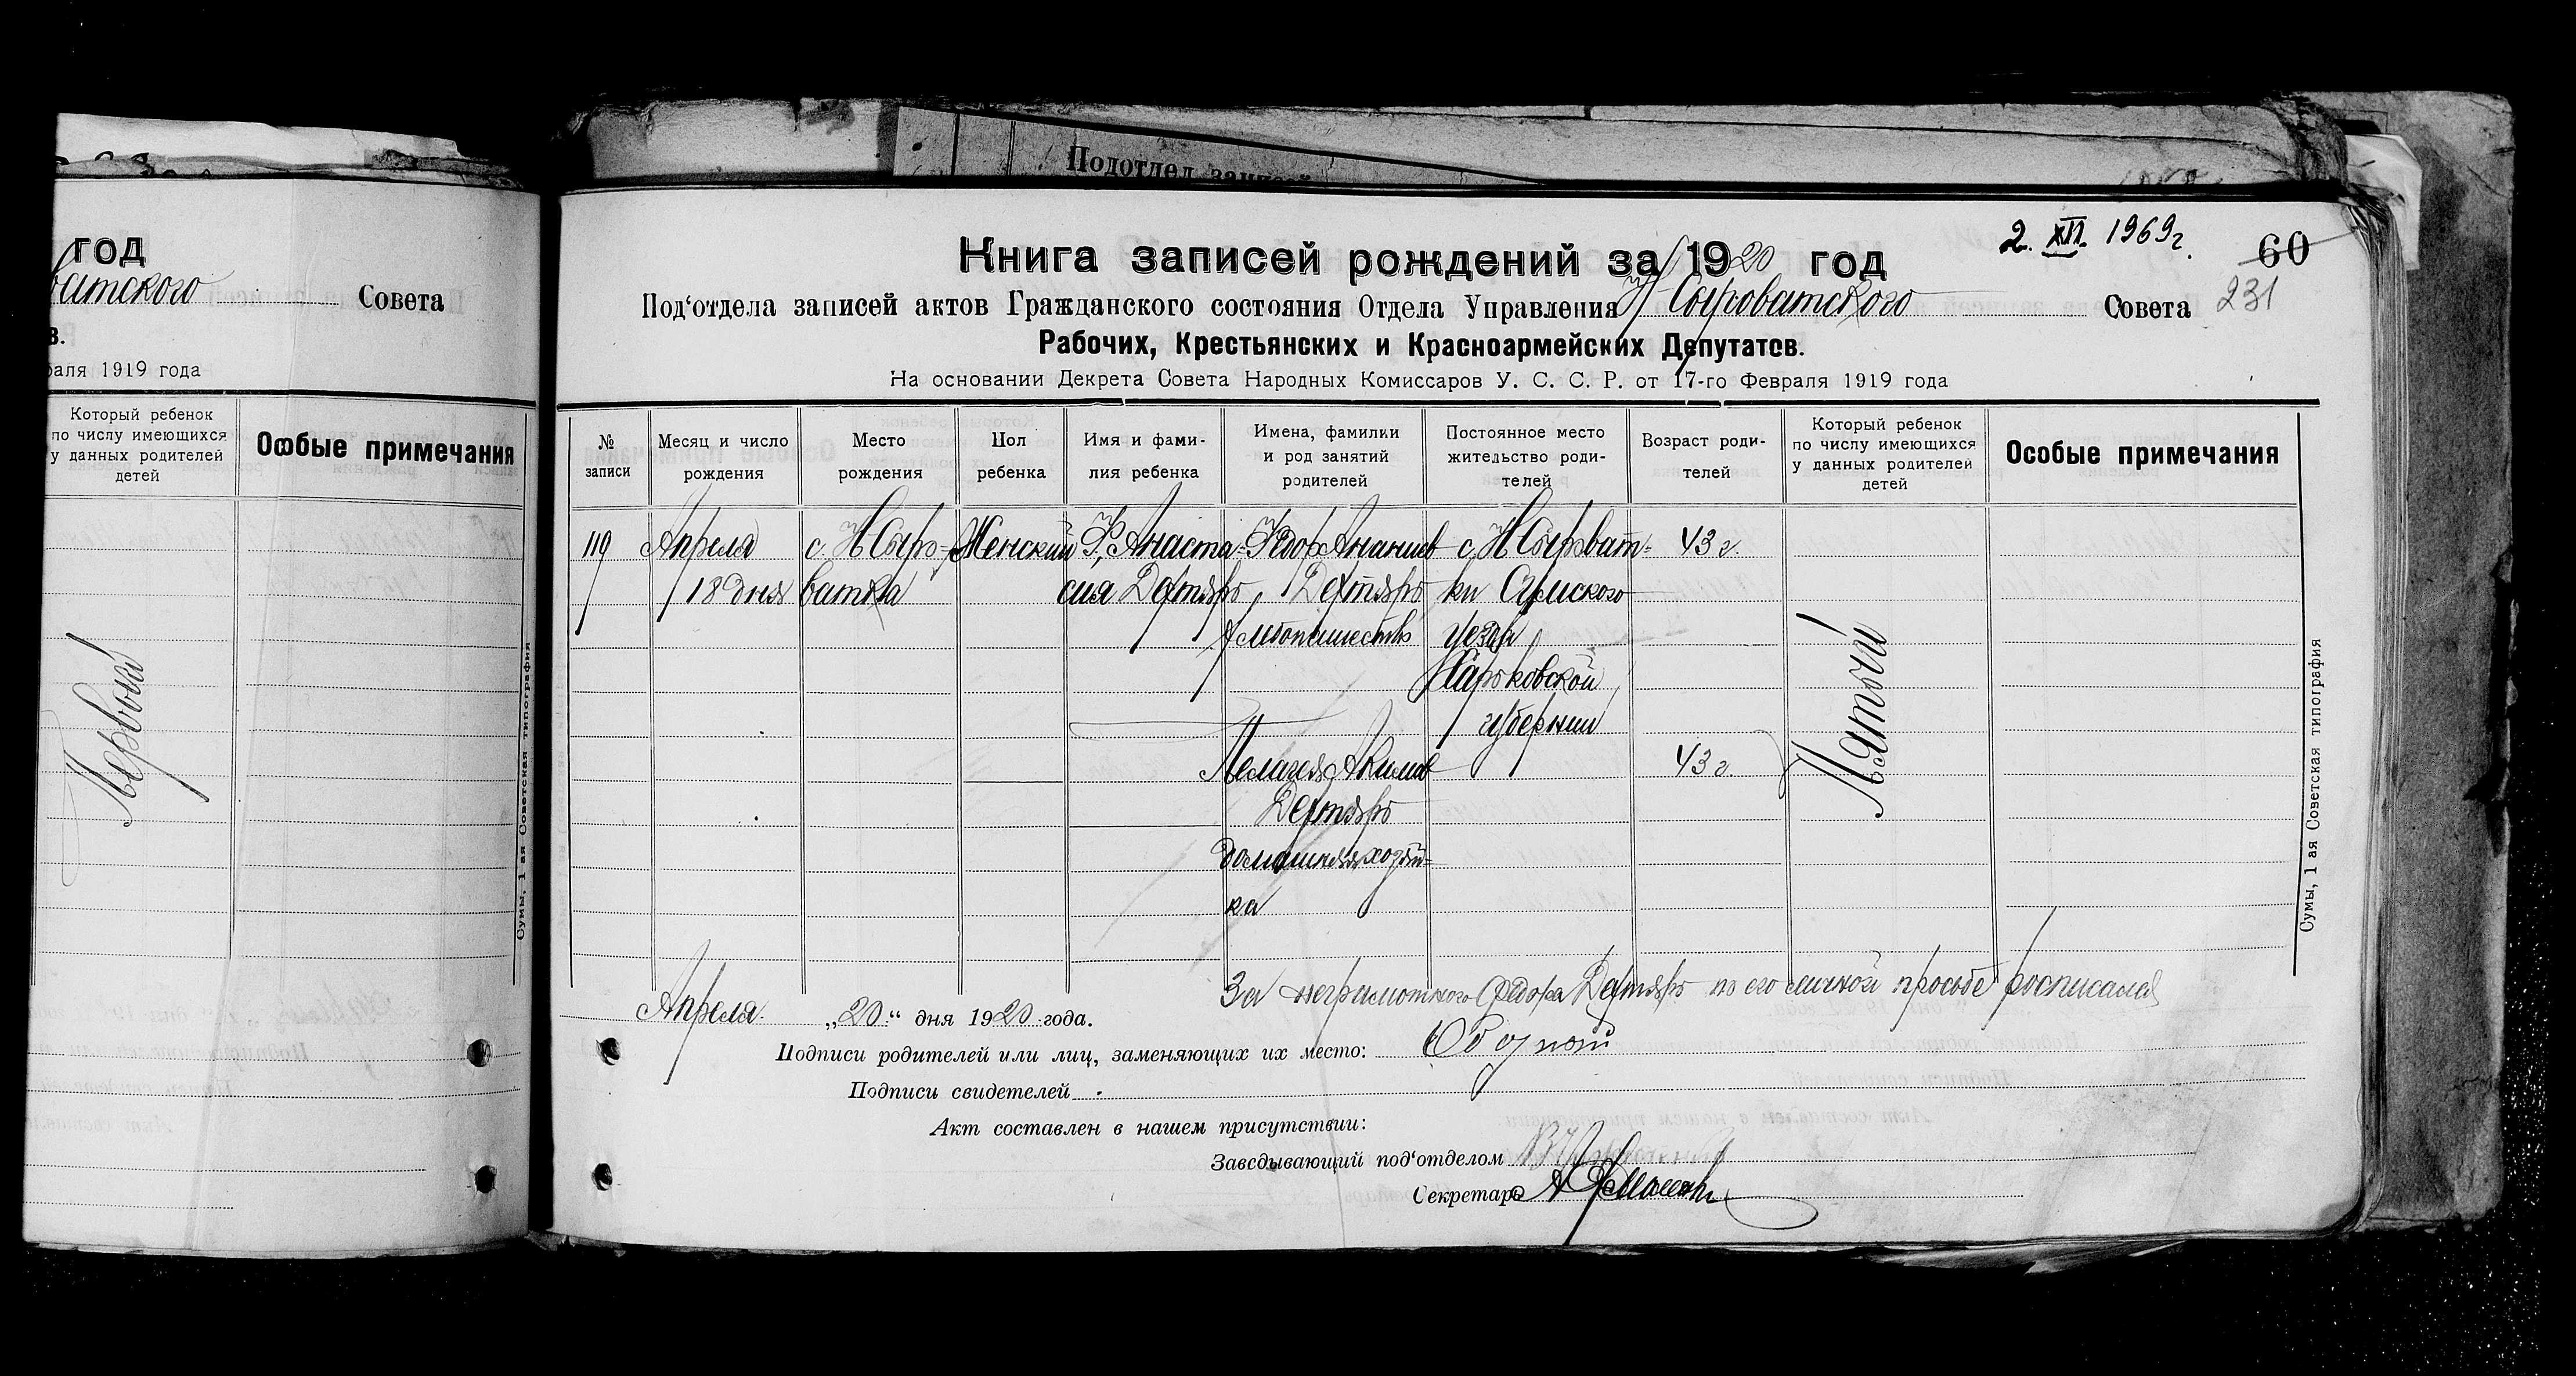 Подотдел
год
ватского Совета
аля 1919 года
Который ребенок
по числу имеющихся
у данных родителей
детей
Особые примечания
Первый
Сумы, 1 ая Советская типография
2. XII. 1969г.
60
231
Книга записей рождений за 1920 год
Под‘отдела записей актов Гражданского состояния Отдела Управления Н Сыроватского Совета
Рабочих, Крестьянских и Красноармейских Депутатов.
На основании Декрета Совета Народных Комиссаров У. С. С. Р. от 17-го Февраля 1919 года
№ записи
Месяц и число рождения
Место рождения
Пол ребенка
Имя и фами-лия ребенка
Имена, фамилии и род занятий родителей
Постоянное место жительство роди-телей
Возраст роди-телей
Который ребенок по числу имеющихся у данных родителей детей
Особые примечания
119 Апреля с. Н Сыро- Женский Анаста- Федор Ананиев с. Н Сыроват- 43 г.
18 дня ватка сия Дегтярь Дегтярь ки Сумского
хлебопашество уезда
Харьковской
губернии
Пелагея Акимов 43 г.
Дегтярь
домашняя хозяй-
ка
Пятый
За неграмотного Федора Дегтярь по его личной просьбе росписался
Апреля „20“ дня 1920 года.
Подписи родителей или лиц, заменяющих их место:
Подписи свидетелей
Акт составлен в нашем присутствии:
Заведывающий под‘отделом
Секретарь
Сумы, 1 ая Советская типография